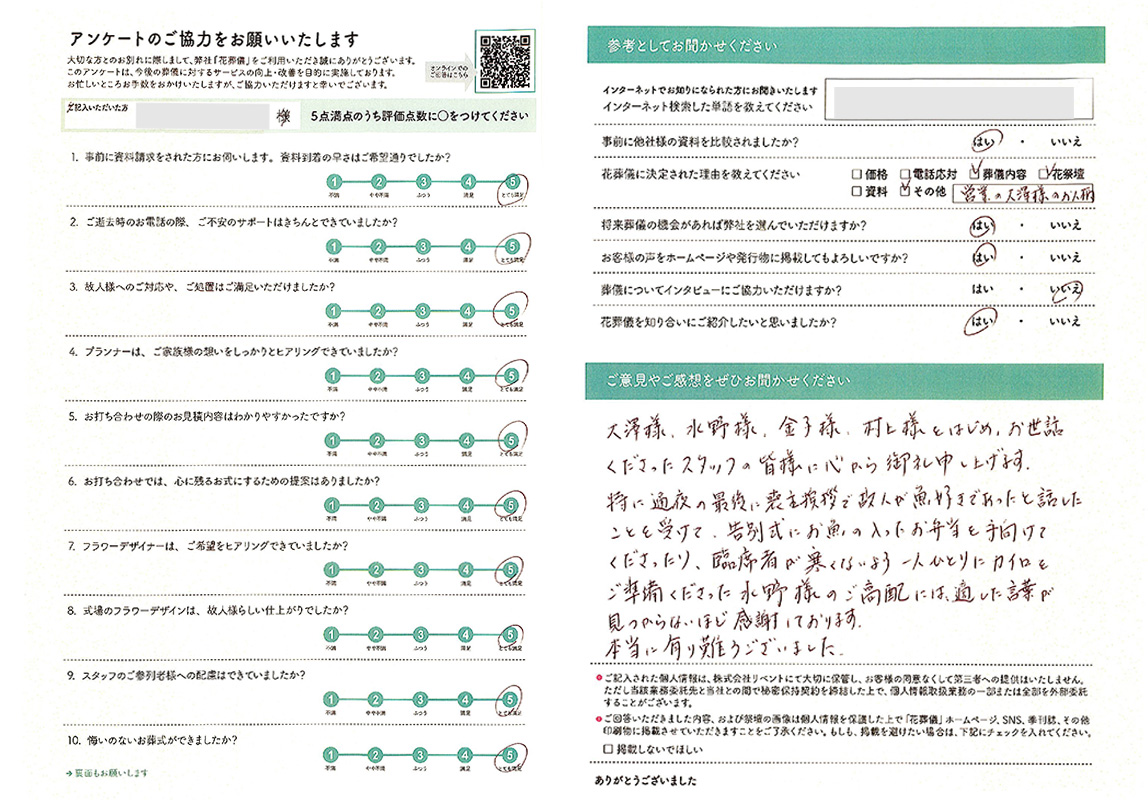 アンケートのご協力をお願いいたします
大切な方とのお別れに際しまして、弊社「花葬儀」をご利用いただき誠にありがとうございます。
このアンケートは、今後の葬儀に対するサービスの向上・改善を目的に実施しております。
お忙しいところお手数をおかけいたしますが、ご協力いただけますと幸いでございます。
オンラインでの
ご回答はこちら
ご記入いただいた方
様
5点満点のうち評価点数に○をつけてください
1. 事前に資料請求をされた方にお伺いします。資料到着の早さはご希望通りでしたか？
1 2 3 4 5
不満 やや不満 ふつう 満足 とても満足
2. ご逝去時のお電話の際、ご不安のサポートはきちんとできていましたか？
1 2 3 4 5
不満 やや不満 ふつう 満足 とても満足
3. 故人様へのご対応や、ご処置はご満足いただけましたか？
1 2 3 4 5
不満 やや不満 ふつう 満足 とても満足
4. プランナーは、ご家族様の想いをしっかりとヒアリングできていましたか？
1 2 3 4 5
不満 やや不満 ふつう 満足 とても満足
5. お打ち合わせの際のお見積内容はわかりやすかったですか？
1 2 3 4 5
不満 やや不満 ふつう 満足 とても満足
6. お打ち合わせでは、心に残るお式にするための提案はありましたか？
1 2 3 4 5
不満 やや不満 ふつう 満足 とても満足
7. フラワーデザイナーは、ご希望をヒアリングできていましたか？
1 2 3 4 5
不満 やや不満 ふつう 満足 とても満足
8. 式場のフラワーデザインは、故人様らしい仕上がりでしたか？
1 2 3 4 5
不満 やや不満 ふつう 満足 とても満足
9. スタッフのご参列者様への配慮はできていましたか？
1 2 3 4 5
不満 やや不満 ふつう 満足 とても満足
10. 悔いのないお葬式ができましたか？
1 2 3 4 5
不満 やや不満 ふつう 満足 とても満足
→裏面もお願いします
参考としてお聞かせください
インターネットでお知りになられた方にお聞きいたします
インターネット検索した単語を教えてください
事前に他社様の資料を比較されましたか？ はい ・ いいえ
花葬儀に決定された理由を教えてください □価格 □電話応対 □葬儀内容 □花祭壇
□資料 □その他 営業の大澤様のお人柄
将来葬儀の機会があれば弊社を選んでいただけますか？ はい ・ いいえ
お客様の声をホームページや発行物に掲載してもよろしいですか？ はい ・ いいえ
葬儀についてインタビューにご協力いただけますか？ はい ・ いいえ
花葬儀を知り合いにご紹介したいと思いましたか？ はい ・ いいえ
ご意見やご感想をぜひお聞かせください
大澤様、水野様、金子様、村上様をはじめ、お世話
くださったスタッフの皆様に心から御礼申し上げます。
特に通夜の最後に喪主挨拶で故人が魚好きであったと話した
ことを受けて、告別式にお魚の入ったお弁当を手向けて
くださったり、臨席者が寒くないよう一人ひとりにカイロを
ご準備くださった水野様のご高配には、適した言葉が
見つからないほど感謝しております。
本当に有り難うございました。
●ご記入された個人情報は、株式会社リベントにて大切に保管し、お客様の同意なくして第三者への提供はいたしません。
ただし当該業務委託先と当社との間で秘密保持契約を締結した上で、個人情報取扱業務の一部または全部を外部委託
することがございます。
●ご回答いただきました内容、および祭壇の画像は個人情報を保護した上で「花葬儀」ホームページ、SNS、季刊誌、その他
印刷物に掲載させていただきますことをご了承ください。もしも、掲載を避けたい場合は、下記にチェックを入れてください。
□掲載しないでほしい
ありがとうございました